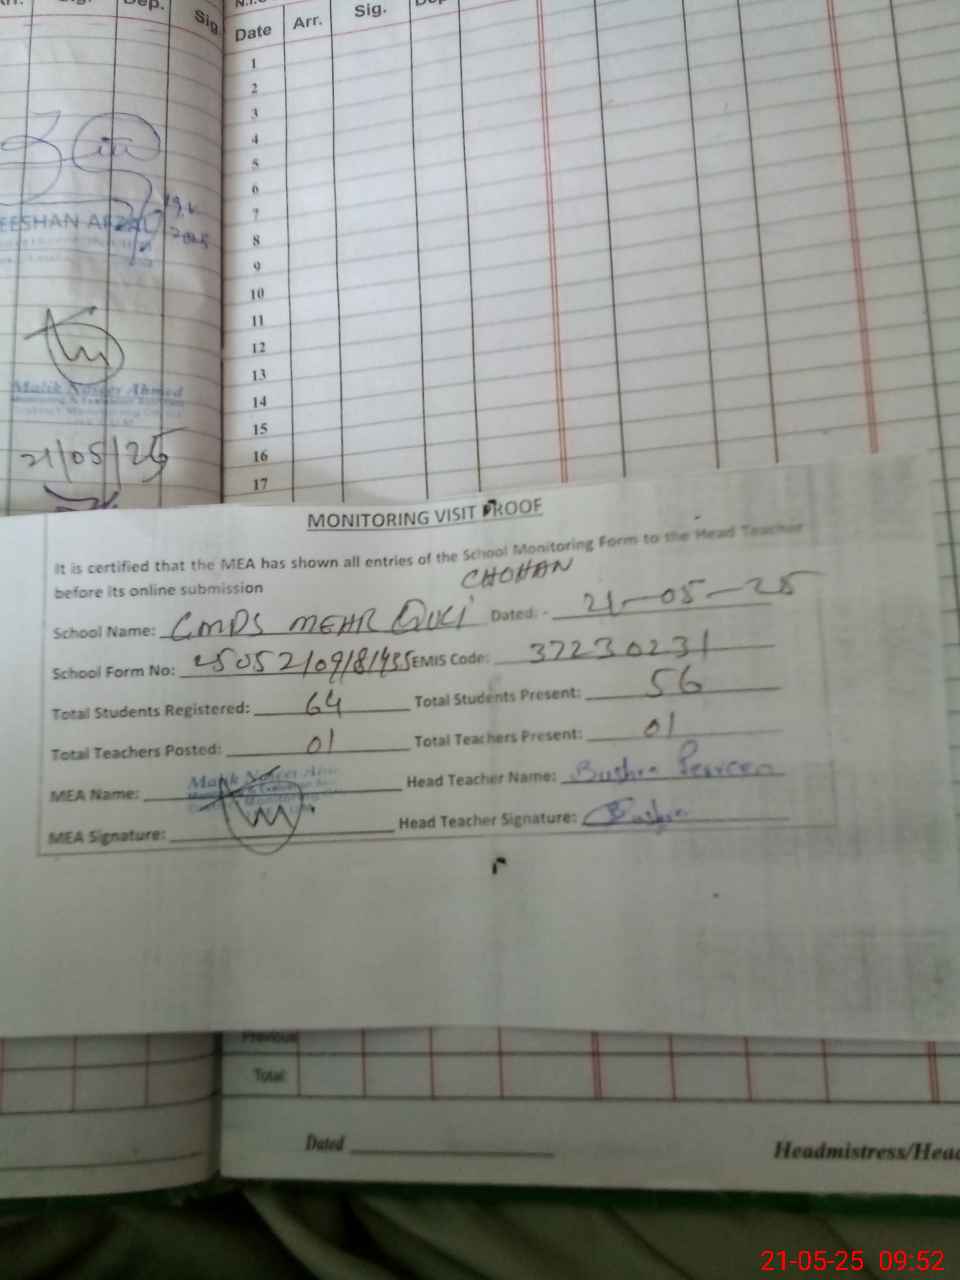 Dep.
Sig.
Date Arr. Sig.
1
2
3
4
5
6
7
8
9
10
11
12
13
14
15
16
17
EESHAN AFZAL
Malik Naseer Ahmed
21/05/25
MONITORING VISIT PROOF
It is certified that the MEA has shown all entries of the School Monitoring Form to the Head Teacher
before its online submission
CHOHAN
School Name: GMPS MEHR QULI Dated: - 21-05-25
School Form No: EMIS Code: 37230231
Total Students Registered: 64 Total Students Present: 56
Total Teachers Posted: 01 Total Teachers Present: 01
MEA Name: Malik Naseer Head Teacher Name: Bushra Perveen
MEA Signature: Head Teacher Signature: Bushra
Previous
Total
Dated Headmistress/Head
21-05-25 09:52